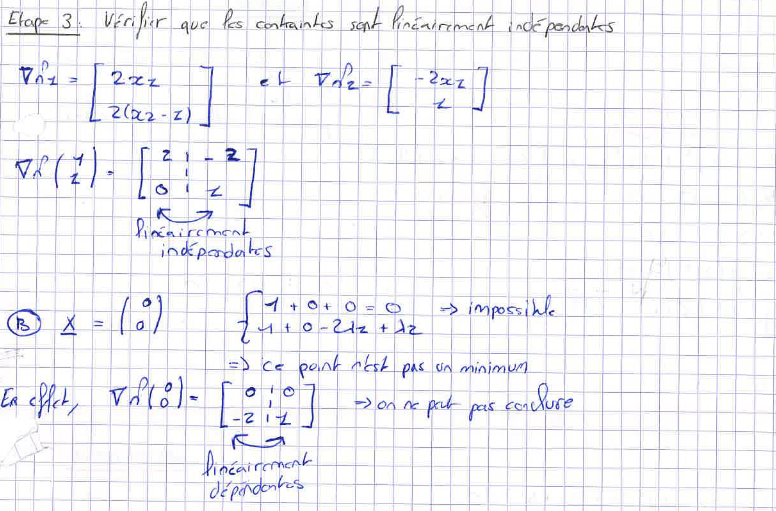 Etape 3 : Vérifier que les contraintes sont linéairement indépendantes
∇h1 = [ 2x1 ; 2(x2 - 1) ] et ∇h2 = [ -2x1 ; 1 ]
∇h(1 1) = [ 2 | -2 ; 0 | 1 ]
linéairement
indépendantes
B X = (0 0) { 1 + 0 + 0 = 0 ⇒ impossible
1 + 0 - 2λ1 + λ2
⇒ ce point n'est pas un minimum
En effet, ∇h(0 0) = [ 0 | 0 ; -2 | 1 ] → on ne peut pas conclure
linéairement
dépendantes